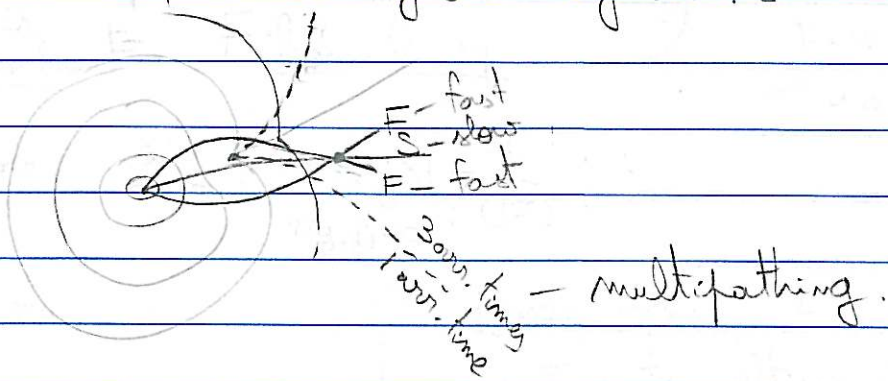 F - fast
S - slow
F - fast
3 arr. times
1 arr. time
- multipathing.